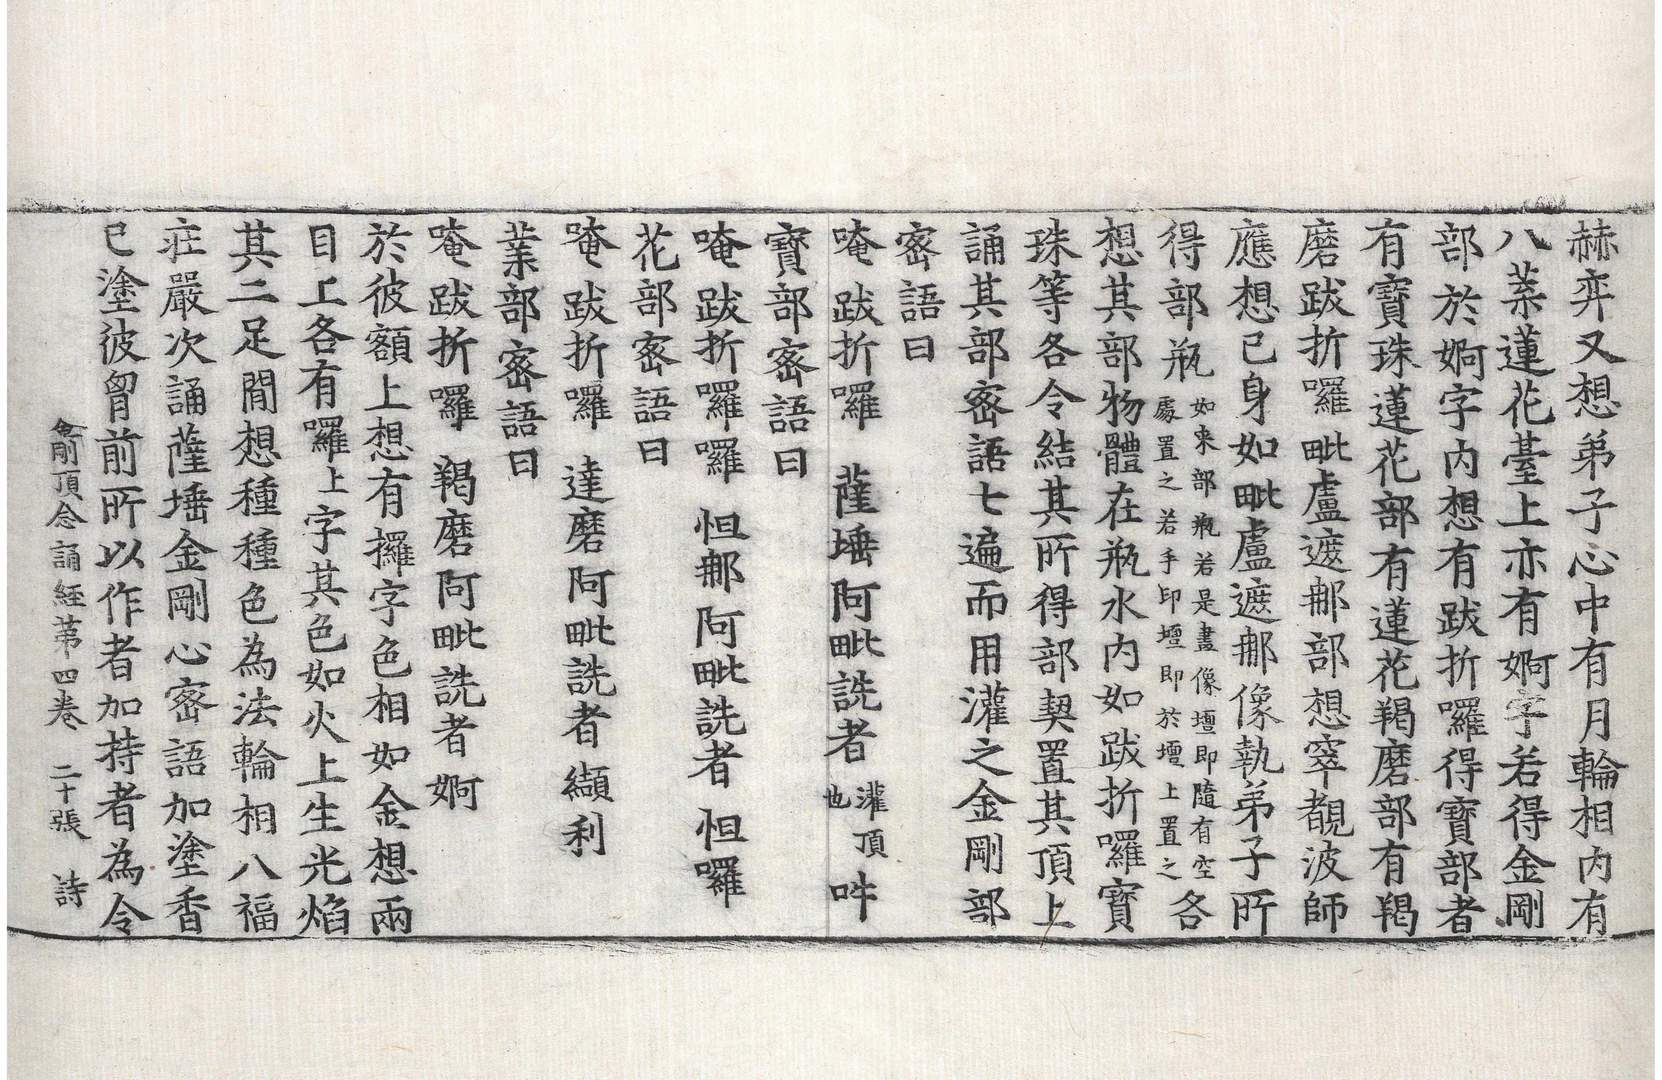 赫弈又想弟子心中有月輪相內有
八葉蓮花臺上亦有婀字若得金剛
部於婀字內想有跋折囉得寶部者
有寶珠蓮花部有蓮花羯磨部有羯
磨跋折囉毗盧遮那部想窣覩波師
應想已身如毗盧遮那像執弟子所
得部瓶如來部瓶若是畫像壇即隨有空
處置之若手印壇即於壇上置之各
想其部物體在瓶水內如跋折囉寶
珠等各令結其所得部契置其頂上
誦其部密語七遍而用灌之金剛部
密語曰
唵 跋折囉 薩埵阿毗詵者灌頂也吽
寶部密語曰
唵 跋折囉囉 怛那阿毗詵者 怛囉
花部密語曰
唵 跋折囉 達磨阿毗詵者纈利
業部密語曰
唵 跋折囉 羯磨阿毗詵者婀
於彼額上想有攞字色相如金想兩
目上各有囉上字其色如火上生光焰
其二足間想種種色為法輪相八福
莊嚴次誦薩埵金剛心密語加塗香
已塗彼胷前所以作者加持者為令
金剛頂念誦經第四卷 二十張 詩